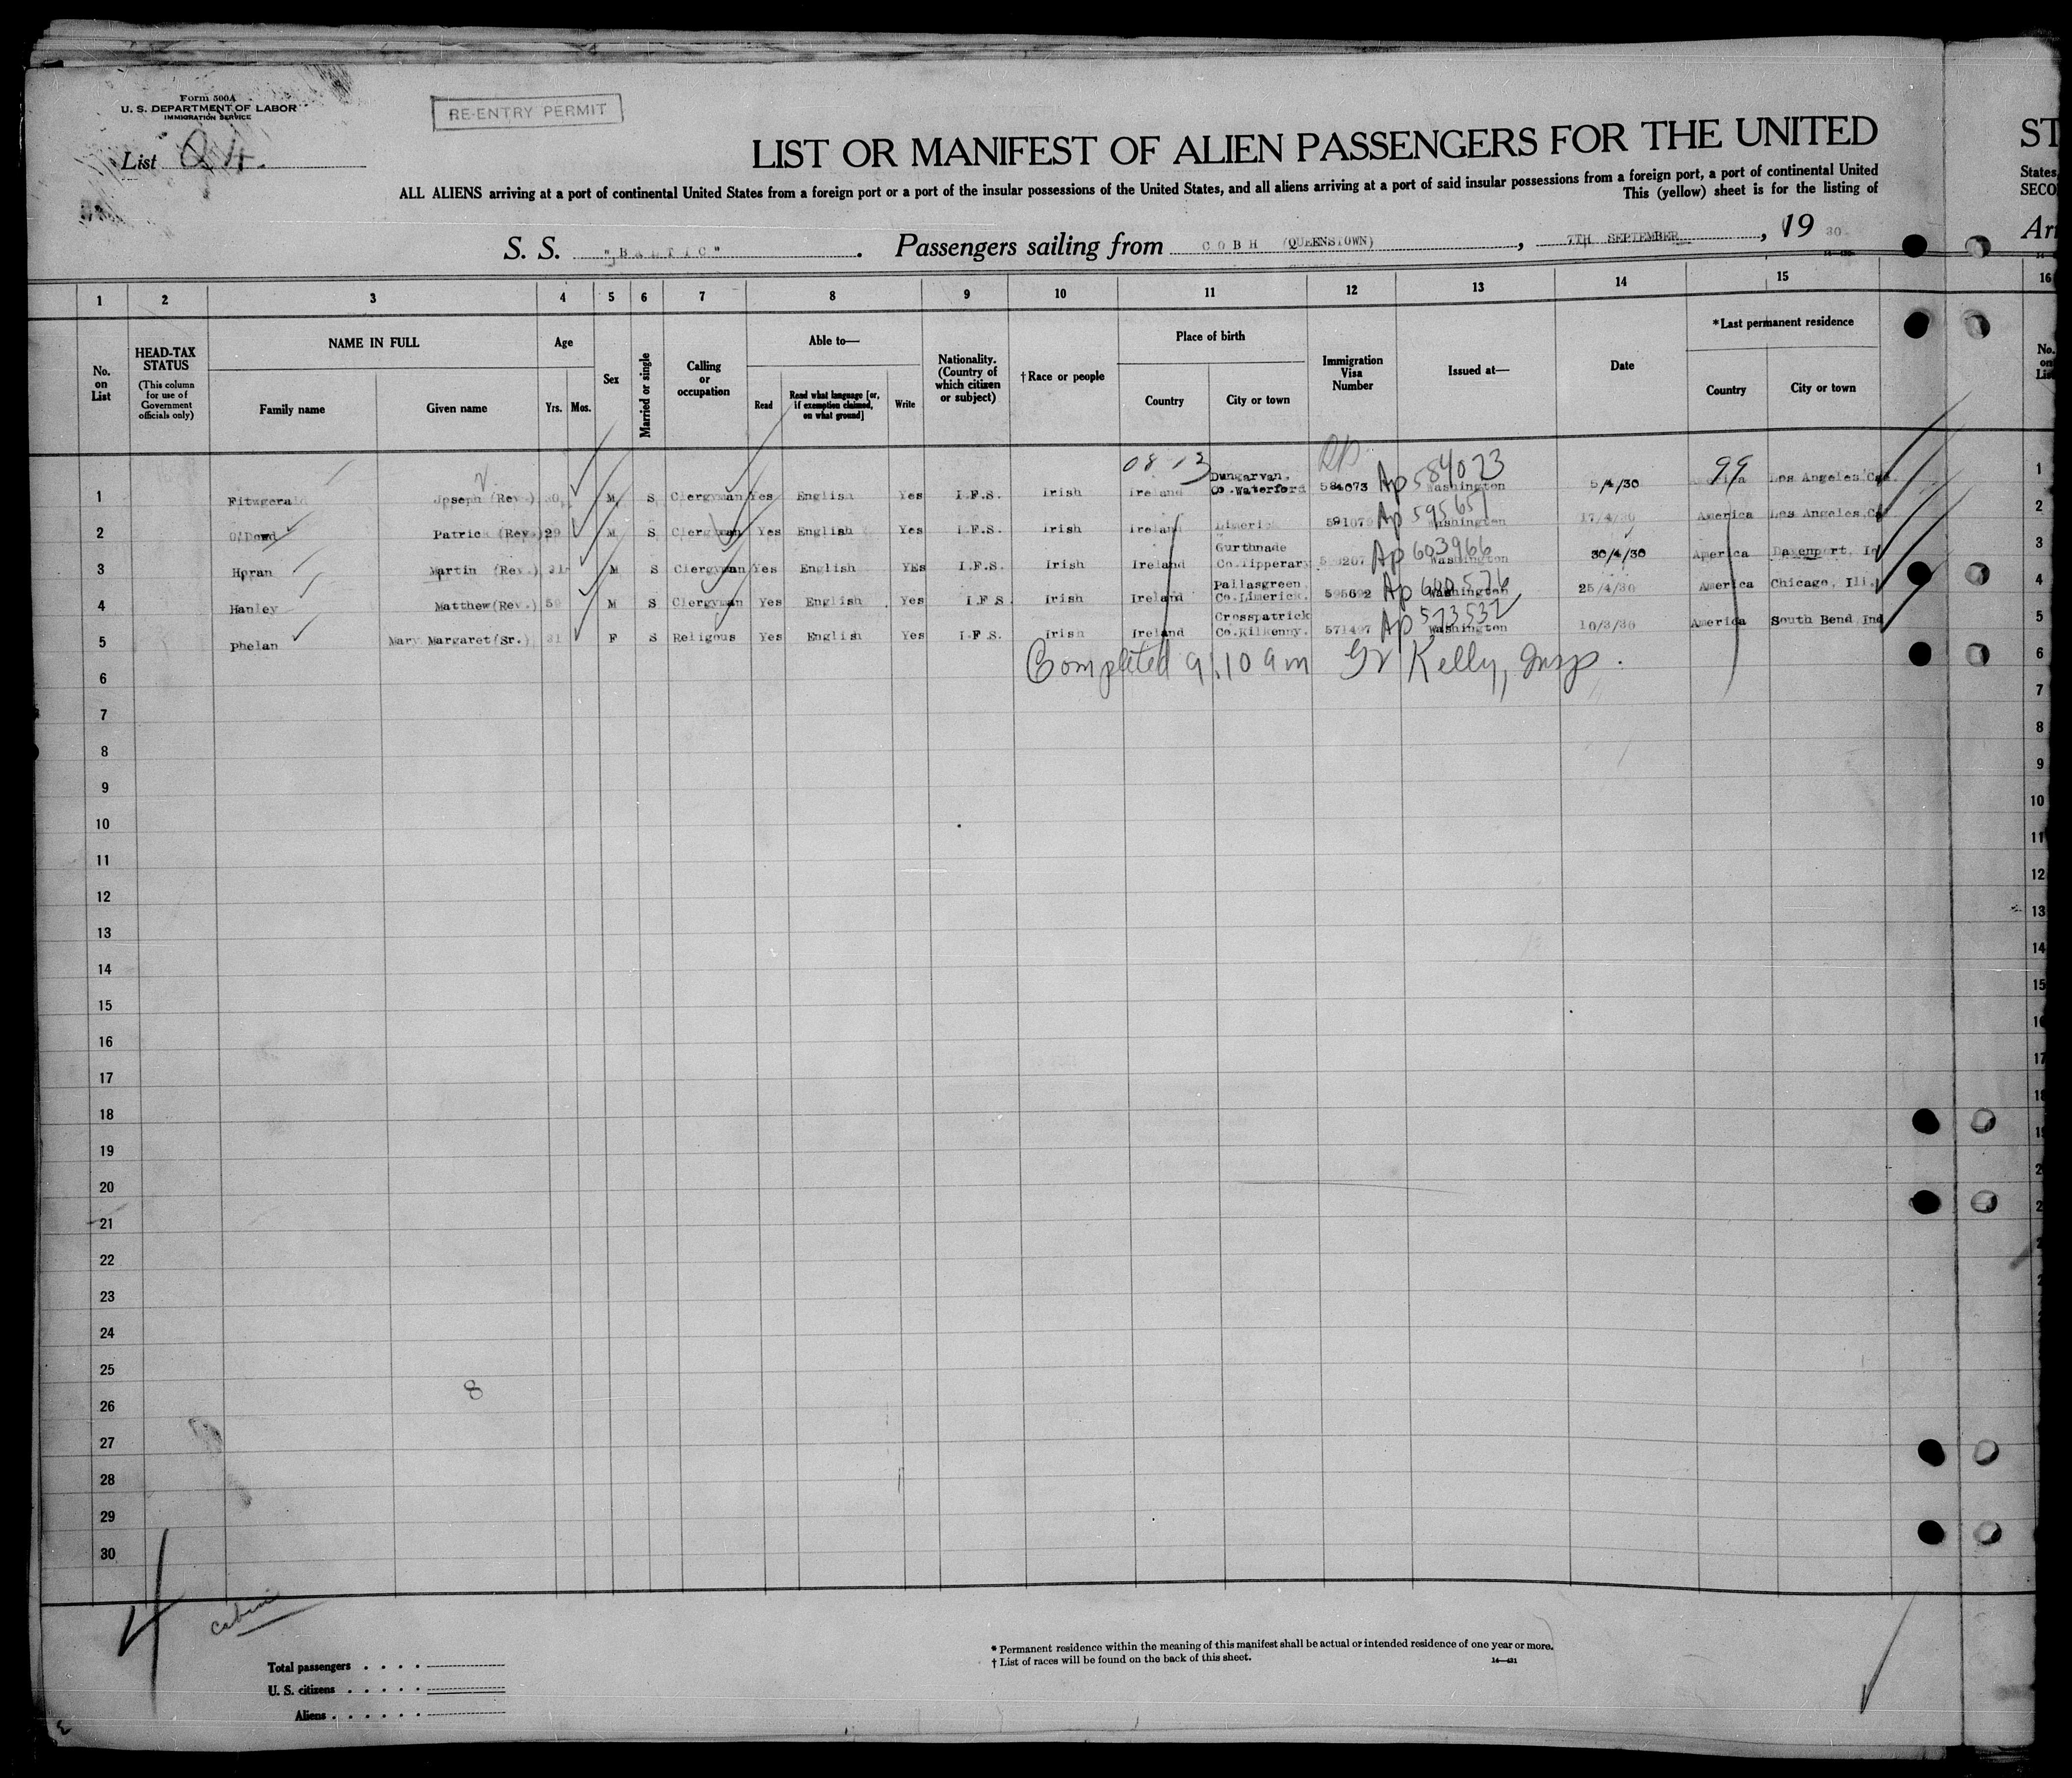 Form 500A
U. S. DEPARTMENT OF LABOR
IMMIGRATION SERVICE
RE-ENTRY PERMIT
List
LIST OR MANIFEST OF ALIEN PASSENGERS FOR THE UNITED
ST
ALL ALIENS arriving at a port of continental United States from a foreign port or a port of the insular possessions of the United States, and all aliens arriving at a port of said insular possessions from a foreign port, a port of continental United
States,
This (yellow) sheet is for the listing of
SECO
S. S. "BALTIC". Passengers sailing from COBH (QUEENSTOWN), 7TH SEPTEMBER, 1930
Arr
1 2 3 4 5 6 7 8 9 10 11 12 13 14 15 16
No. on List
HEAD-TAX STATUS
(This column for use of Government officials only)
NAME IN FULL
Family name
Given name
Age
Yrs.
Mos.
Sex
Married or single
Calling or occupation
Able to—
Read
Read what language [or, if exemption claimed, on what ground]
Write
Nationality. (Country of which citizen or subject)
†Race or people
Place of birth
Country
City or town
Immigration Visa Number
Issued at—
Date
*Last permanent residence
Country
City or town
No. on List
08 13 99
1 Fitzgerald Joseph (Rev.) 30 M S Clergyman Yes English Yes I.F.S. Irish Ireland Dungarvan, Co. Waterford 584073 Ap 584023 Washington 5/4/30 America Los Angeles Cal. 1
2 O'Dowd Patrick (Rev.) 29 M S Clergyman Yes English Yes I.F.S. Irish Ireland Limerick Ap 595651 Washington 17/4/30 America Los Angeles, Cal 2
3 Horan Martin (Rev.) 31 M S Clergyman Yes English YEs I.F.S. Irish Ireland Gurthnade Co. Tipperary Ap 603966 Washington 30/4/30 America Davenport, Io 3
4 Hanley Matthew (Rev.) M S Clergyman Yes English Yes I F S. Irish Ireland Pallasgreen Co. Limerick. 595692 Ap 600576 Washington 25/4/30 America Chicago, Ill. 4
5 Phelan Mary Margaret (Sr.) 31 F S Religous Yes English Yes I.F.S. Irish Ireland Crosspatrick Co. Kilkenny. 571497 Ap 573532 Washington 10/3/30 America South Bend, Ind 5
Completed 9.10 am Kelly, Insp.
6 6
7 7
8 8
9 9
10 10
11 11
12 12
13 13
14 14
15 15
16 16
17 17
18 18
19
20
21
22
23
24
25
8
26
27
28
29
30
4
cabin
Total passengers
U. S. citizens
Aliens
* Permanent residence within the meaning of this manifest shall be actual or intended residence of one year or more.
† List of races will be found on the back of this sheet.